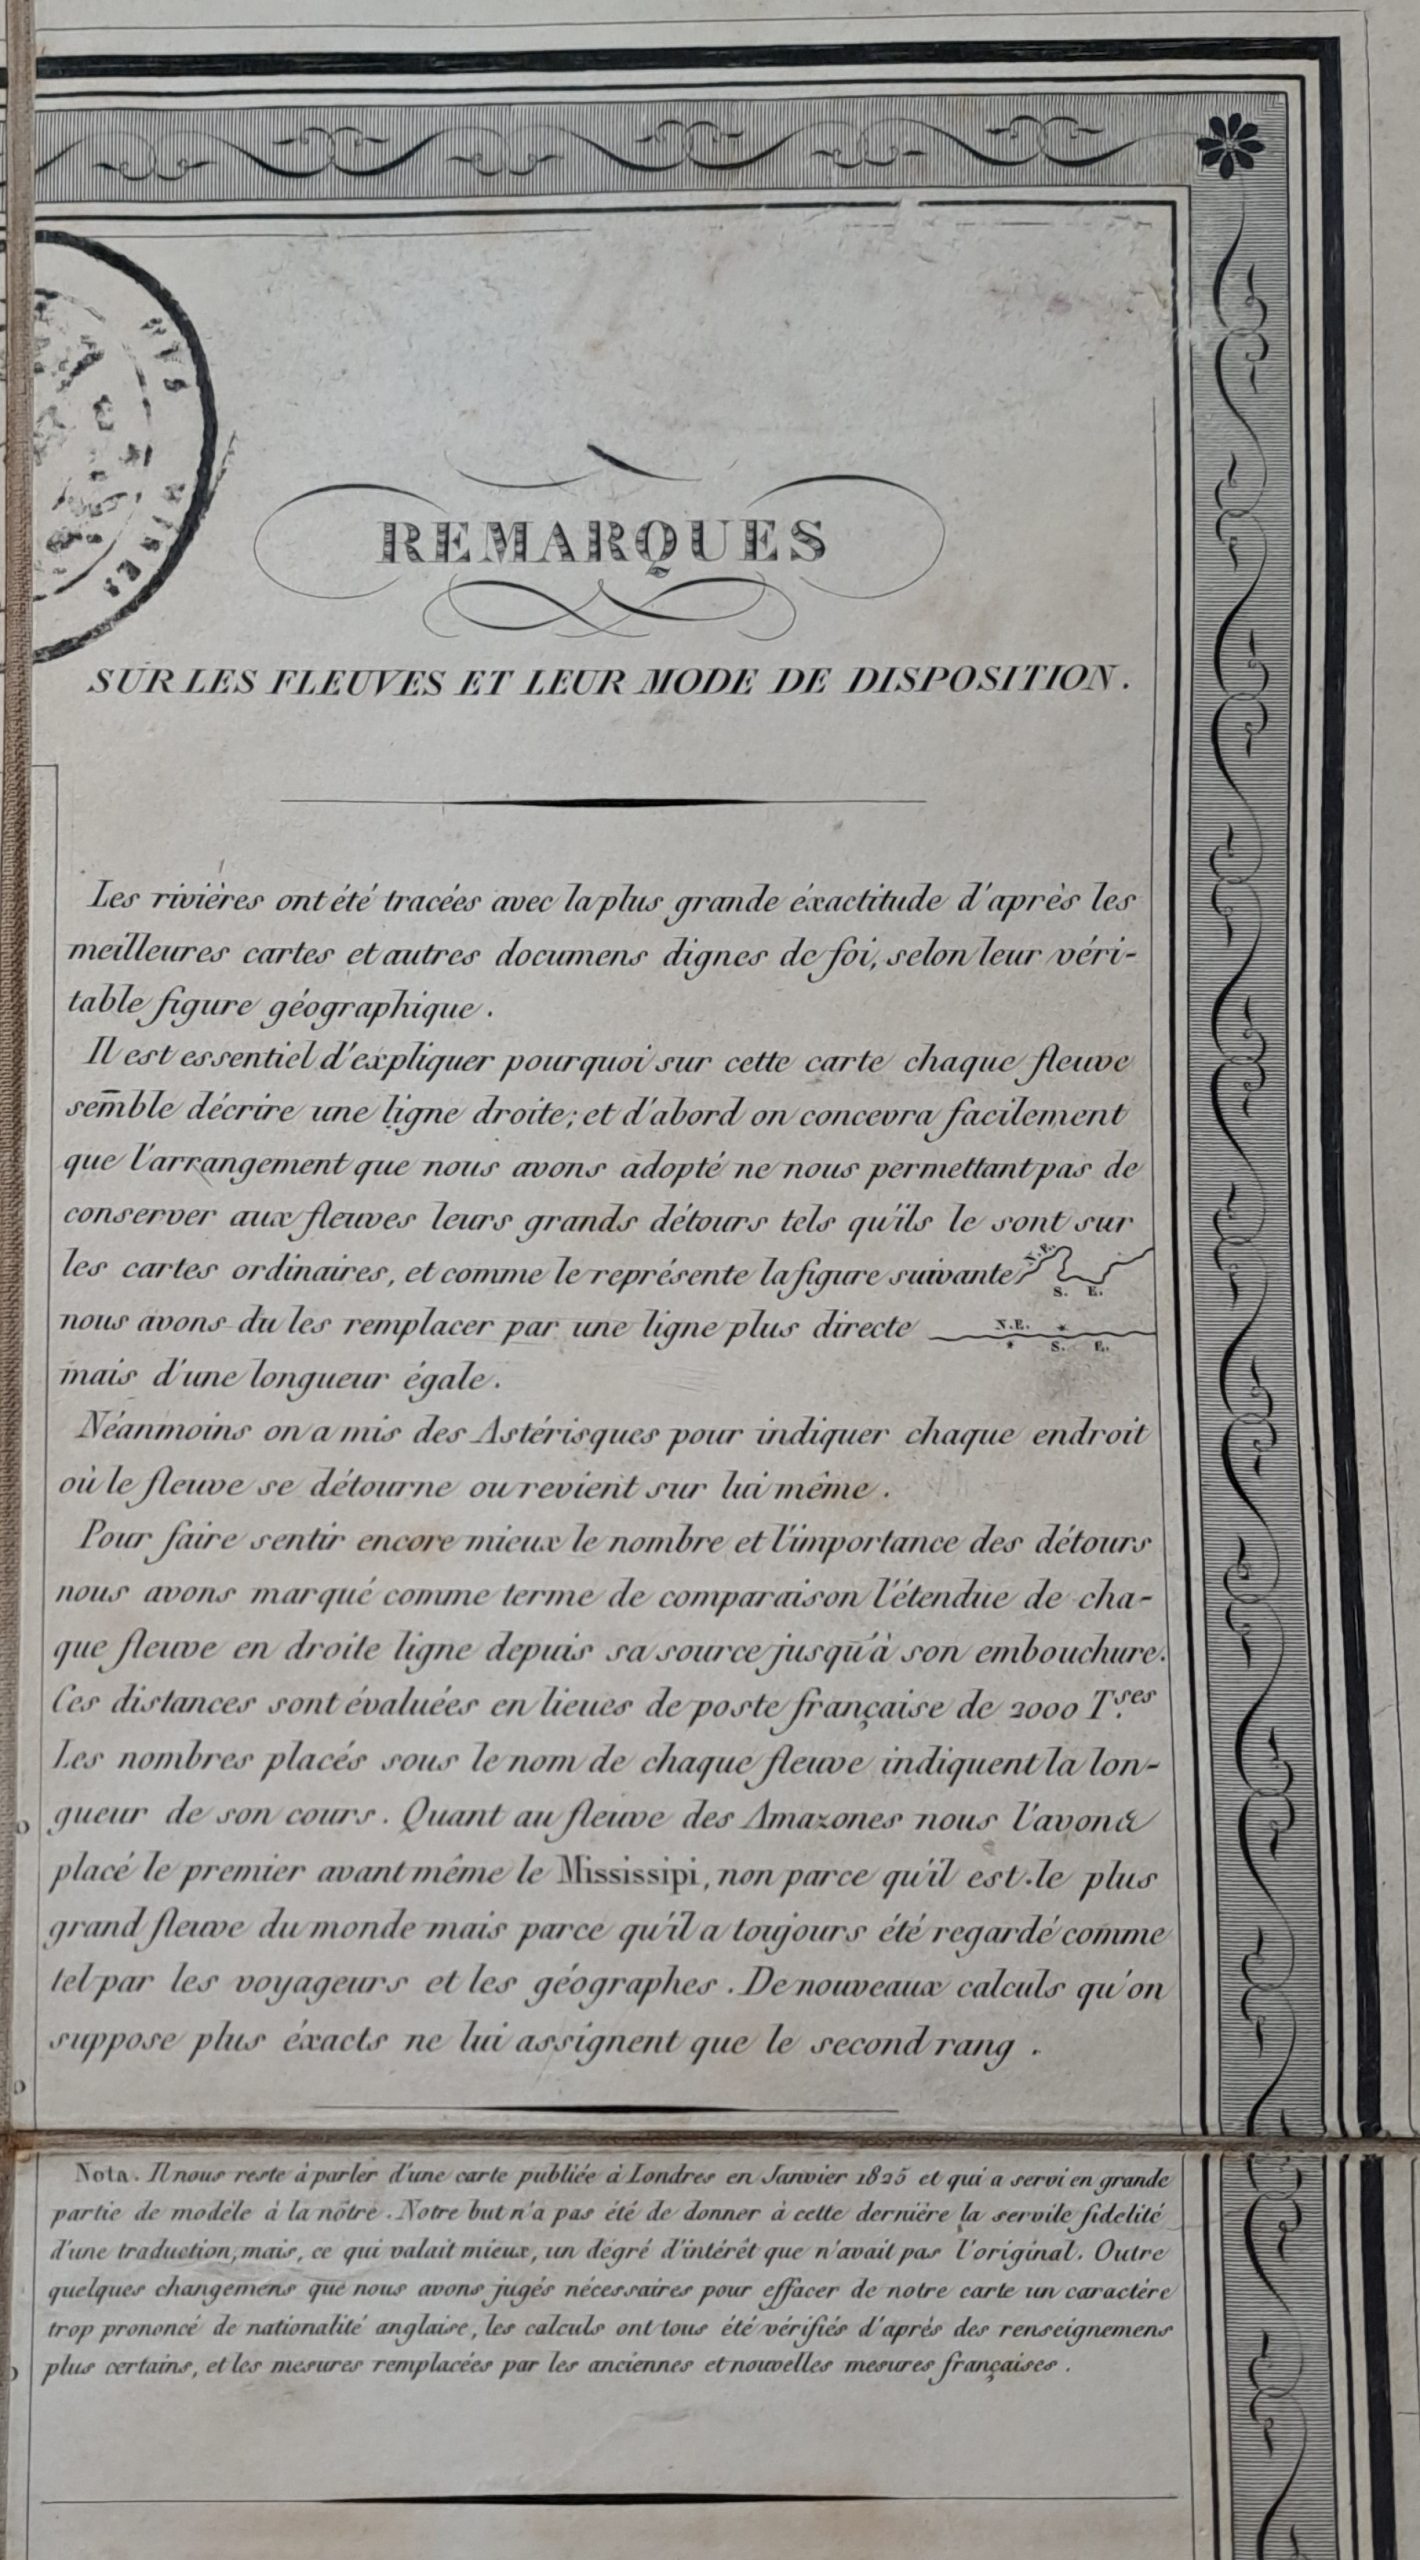 REMARQUES
SUR LES FLEUVES ET LEUR MODE DE DISPOSITION.
Les rivières ont été tracées avec la plus grande éxactitude d'après les
meilleures cartes et autres documens dignes de foi, selon leur véri-
table figure géographique.
Il est essentiel d'expliquer pourquoi sur cette carte chaque fleuve
semble décrire une ligne droite; et d'abord on concevra facilement
que l'arrangement que nous avons adopté ne nous permettant pas de
conserver aux fleuves leurs grands détours tels qu'ils le sont sur
les cartes ordinaires, et comme le représente la figure suivante N.E. S. E.
nous avons du les remplacer par une ligne plus directe N.E. * * S. E.
mais d'une longueur égale.
Néanmoins on a mis des Astérisques pour indiquer chaque endroit
où le fleuve se détourne ou revient sur lui même.
Pour faire sentir encore mieux le nombre et l'importance des détours
nous avons marqué comme terme de comparaison l'étendue de cha-
que fleuve en droite ligne depuis sa source jusqu'à son embouchure.
Ces distances sont évaluées en lieues de poste française de 2000 T.ses
Les nombres placés sous le nom de chaque fleuve indiquent la lon-
gueur de son cours. Quant au fleuve des Amazones nous l'avons
placé le premier avant même le Mississipi, non parce qu'il est le plus
grand fleuve du monde mais parce qu'il a toujours été regardé comme
tel par les voyageurs et les géographes. De nouveaux calculs qu'on
suppose plus éxacts ne lui assignent que le second rang.
Nota. Il nous reste à parler d'une carte publiée à Londres en Janvier 1825 et qui a servi en grande
partie de modèle à la nôtre. Notre but n'a pas été de donner à cette dernière la servile fidelité
d'une traduction, mais, ce qui valait mieux, un dégré d'intérêt que n'avait pas l'original. Outre
quelques changemens que nous avons jugés nécessaires pour effacer de notre carte un caractère
trop prononcé de nationalité anglaise, les calculs ont tous été vérifiés d'après des renseignemens
plus certains, et les mesures remplacées par les anciennes et nouvelles mesures françaises.